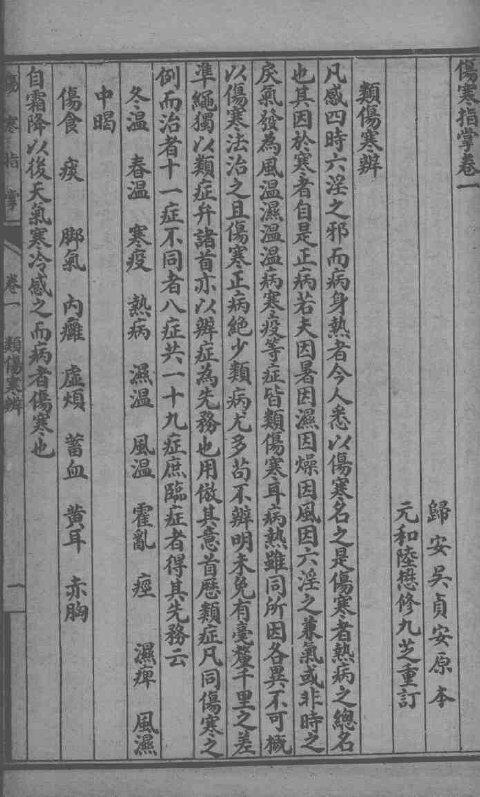 傷寒指掌卷一
歸安吳貞安原本
元和陸懋修九芝重訂
類傷寒辨
凡感四時六淫之邪而病身熱者今人悉以傷寒名之是傷寒者熱病之總名
也其因於寒者自是正病若夫因暑因濕因燥因風因六淫之兼氣或非時之
戾氣發為風溫濕溫溫病寒疫等症皆類傷寒耳病熱雖同所因各異不可概
以傷寒法治之且傷寒正病絶少類病尤多苟不辨明未免有毫釐千里之差
準繩獨以類症弁諸首亦以辨症為先務也用倣其意首歷類症凡同傷寒之
例而治者十一症不同者八症共一十九症庶臨症者得其先務云
冬溫 春溫 寒疫 熱病 濕溫 風溫 霍亂 痙 濕痺 風濕
中暍
傷食 痰 脚氣 內癰 虛煩 蓄血 黄耳 赤胸
自霜降以後天氣寒冷感之而病者傷寒也
傷寒指掌 卷一 類傷寒辨 一